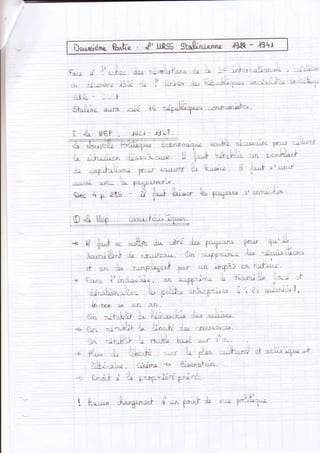 Deuxième Partie : L'URSS Stalinienne 1922 - 1941
Face à l'échec des révolutions de la 3e internationale, création
en décembre 1922 de l'Union des Républiques Socialistes
Staline aura créé 16 républiques communistes.
I. La NEP 1921
La Nouvelle Politique Economique semble nécessaire pour relever
la situation désastreuse. Il faut rétablir un
de capitalisme pour sauver la Russie. Il faut s'unir
aussi avec la paysannerie.
Doc 4 p 286 il faut laisser les paysans s'enrichir.
① La Nep caractéristiques.
→ Il faut se mettre du côté des paysans pour qu'ils
travaillent de nouveau. On supprime les réquisitions
et on les remplace par un impôt en nature.
→ Dans l'industrie, on supprime le travail forcé et
dénationalise la petite entreprise
On rétablit la hiérarchie des salaires.
→ On rétablit la liberté du commerce.
On rétablit la
→ Plus de liberté sur le plan culturel et artistique et
littéraire. Cinéma → Eisenstein.
→ Droit à la propriété privée.
! Aucun changement d'un point de vue politique